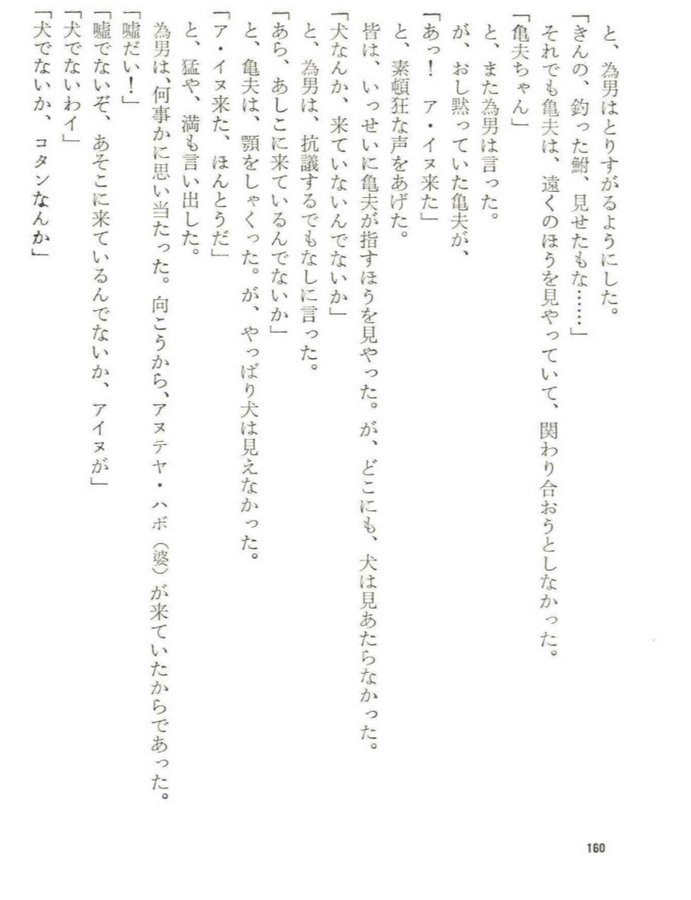 と、為男はとりすがるようにした。
「きんの、釣った鮒、見せたもな……」
　それでも亀夫は、遠くのほうを見やっていて、関わり合おうとしなかった。
「亀夫ちゃん」
　と、また為男は言った。
　が、おし黙っていた亀夫が、
「あっ！　ア・イヌ来た」
　と、素頓狂な声をあげた。
　皆は、いっせいに亀夫が指すほうを見やった。が、どこにも、犬は見あたらなかった。
「犬なんか、来ていないんでないか」
　と、為男は、抗議するでもなしに言った。
「あら、あしこに来ているんでないか」
　と、亀夫は、顎をしゃくった。が、やっぱり犬は見えなかった。
「ア・イヌ来た、ほんとうだ」
　と、猛や、満も言い出した。
　為男は、何事かに思い当たった。向こうから、アヌテヤ・ハボ（婆）が来ていたからであった。
「嘘だい！」
「嘘でないぞ、あそこに来ているんでないか、アイヌが」
「犬でないわイ」
「犬でないか、コタンなんか」
160